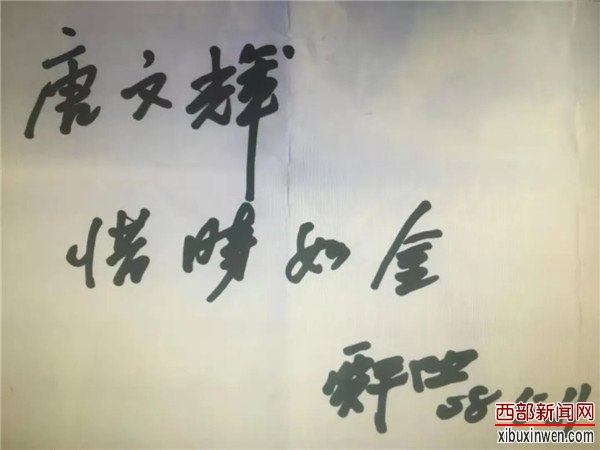 唐文辉
惜時如金
58
西部新闻网
xibuxinwen.com